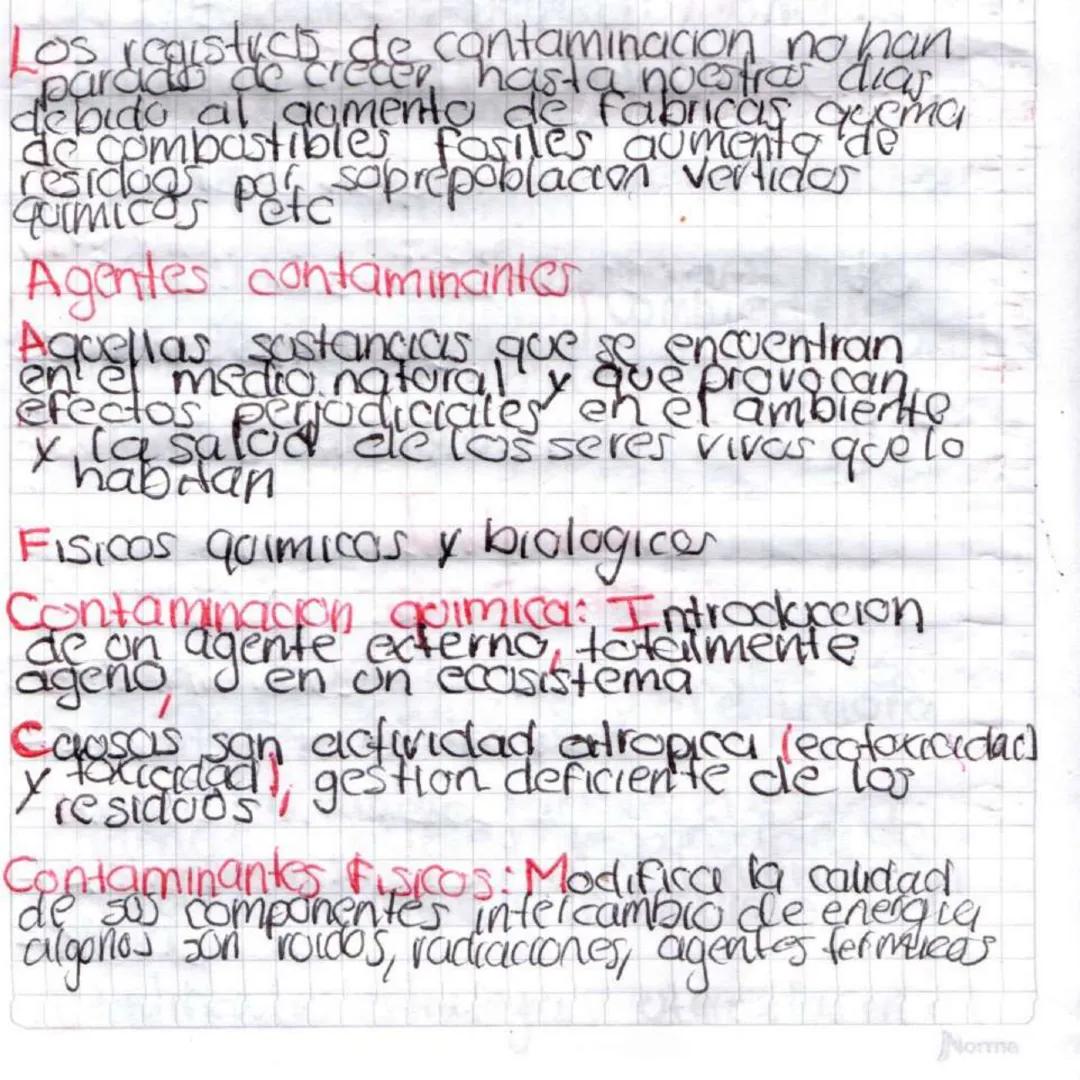 Los registros de contaminacion no han
parado de crecer hasta nuestros dias
debido al aumento de fabricas quema
de combustibles fosiles aumento de
residuos por sobrepoblacion vertidos
quimicos etc
Agentes contaminantes
Aquellas sustancias que se encuentran
en el medio natural y que provocan
efectos perjudiciales en el ambiente
y la salud de los seres vivos que lo
habitan
Fisicos quimicos y biologicos
Contaminacion quimica: Introduccion
de un agente externo, totalmente
ageno, en un ecosistema
Causas son actividad atropica (ecotoxicidad)
y toxicidad), gestion deficiente de los
residuos,
Contaminantes Fisicos: Modifica la calidad
de sus componentes intercambio de energia
algunos son ruidos, radiaciones, agentes termicos
Norma